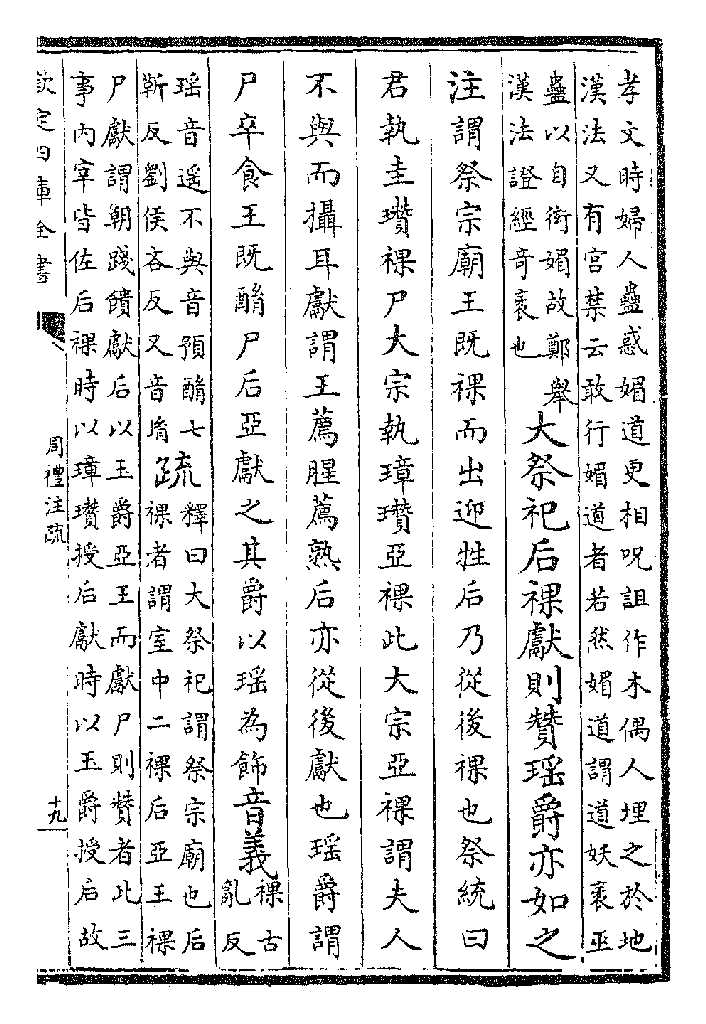 孝文時婦人蠱惑媚道更相呪詛作木偶人埋之於地
漢法又有宫禁云敢行媚道者若然媚道謂道妖衺巫
蠱以自衒媚故鄭舉
漢法證經竒衺也
大祭祀后祼獻則贊瑶爵亦如之
注謂祭宗廟王既祼而出迎牲后乃從後祼也祭統曰
君執圭瓚祼尸大宗執璋瓚亞祼此大宗亞祼謂夫人
不與而攝耳獻謂王薦腥薦熟后亦從後獻也瑶爵謂
尸卒食王既酳尸后亞獻之其爵以瑶為飾
音義
祼古
亂反
瑶音遥不與音預酳七
靳反劉侯吝反又音胤
疏
釋曰大祭祀謂祭宗廟也后
祼者謂室中二祼后亞王祼
尸獻謂朝踐饋獻后以玉爵亞王而獻尸則贊者此三
事内宰皆佐后祼時以璋瓚授后獻時以玉爵授后故
欽定四庫全書
周禮注疏
十九